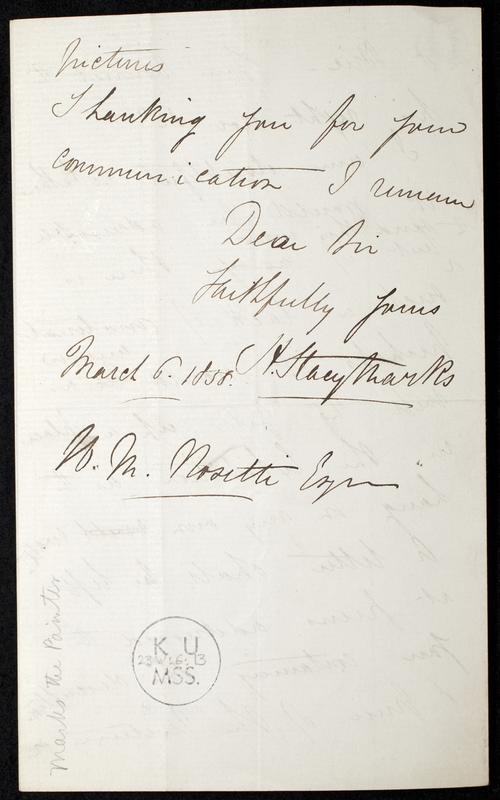 pictures
Thanking you for your
communication I remain
Dear Sir
Faithfully yours
March 6. 1858. H. Stacy Marks
W. M. Rosetti Esqre
Marks the Painter
K U
MSS.